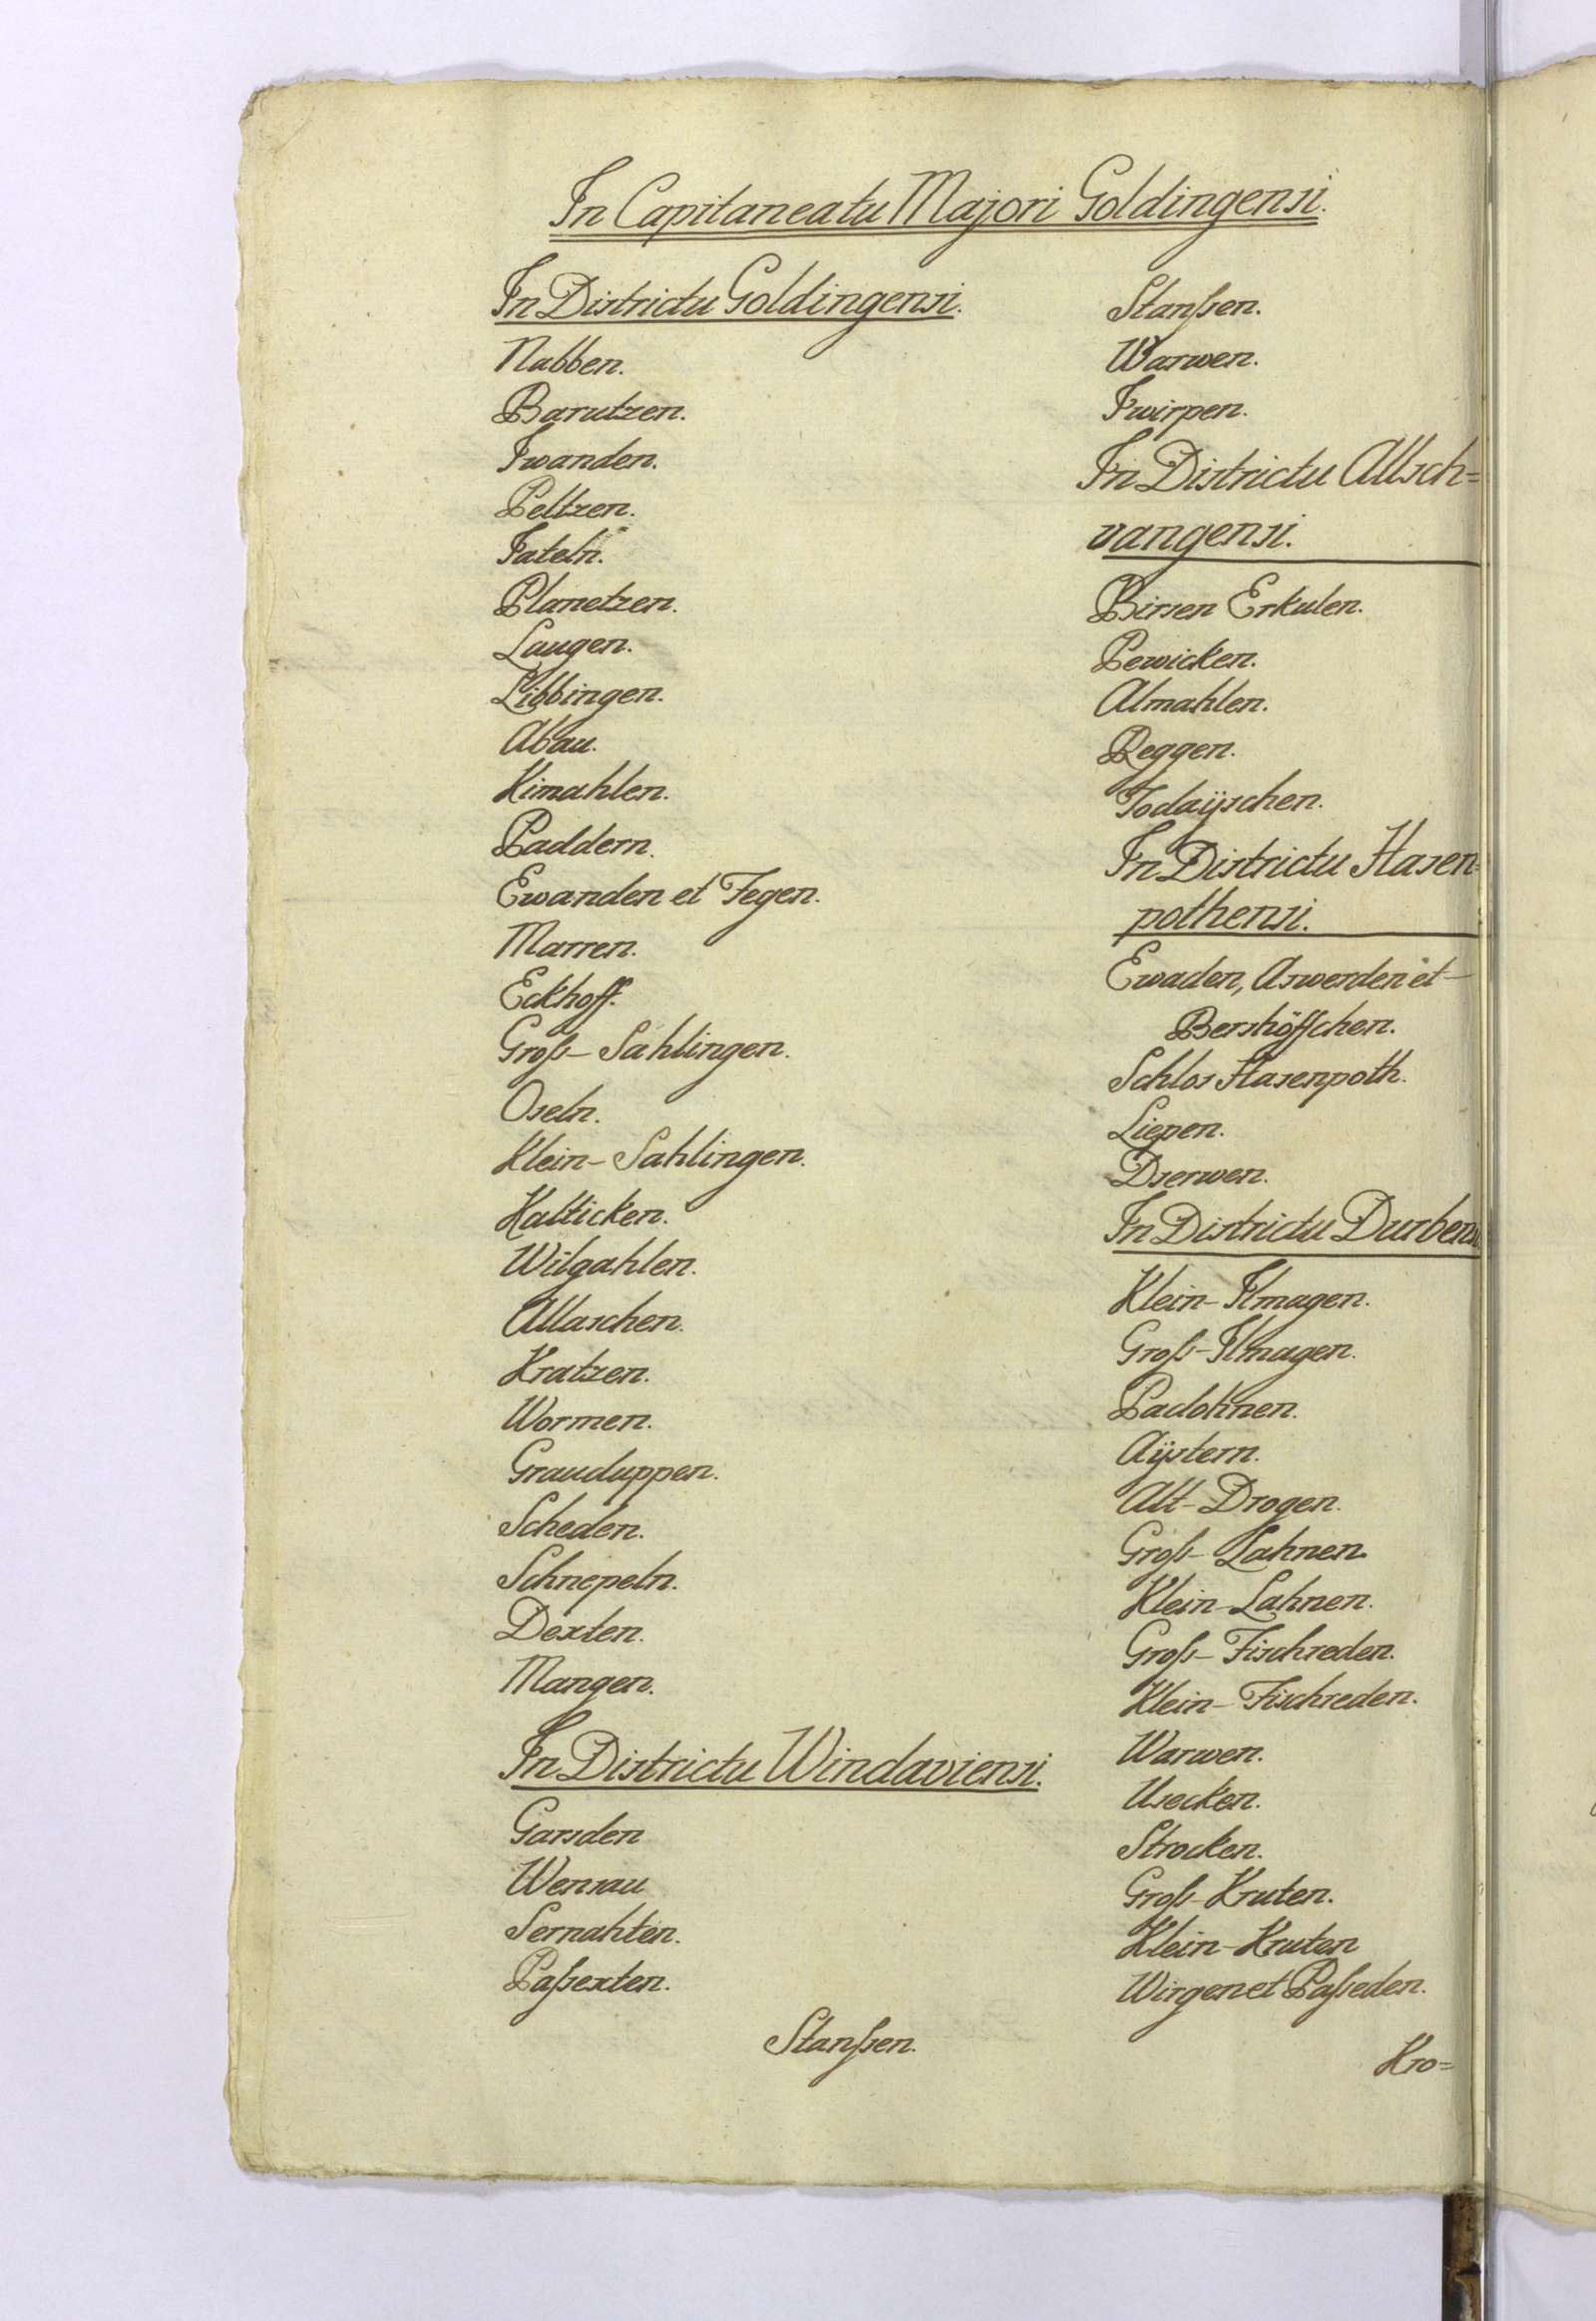 In Capitaneatu Majori Goldingensi.
In Districtu Goldingensi.
Nabben.
Barutzen.
Iwanden.
Peltzen.
Iateln.
Planetzen.
Laugen.
Libbingen.
Abau.
Kimahlen.
Paddern.
Ewanden et Fegen.
Marren.
Eckhoff.
Groß- Sahlingen.
Oseln.
Klein- Sahlingen.
Kalticken.
Wilgahlen.
Allaschen.
Kratzen.
Wormen.
Grauduppen.
Scheden.
Schnepeln.
Dexten.
Mangen.
In Districtu Windaviensi.
Garsden
Wensau
Sernahten.
Paßexten.
Stanßen.
Stanßen.
Warwen.
Iwirpen.
In Districtu Allsch=
vangensi.
Birsen Erkulen.
Pewicken.
Almahlen.
Reggen.
Todaÿschen.
In Districtu Hasen=
pothensi.
Ewaden, Aswerden et
Bershöffchen.
Schlos Hasenpoth.
Liepen.
Dserwen.
In Districtu Durbensi
Klein- Ilmagen.
Groß- Ilmagen.
Padohnen.
Aÿstern.
Alt- Drogen.
Groß- Lahnen.
Klein- Lahnen.
Groß- Fischreden.
Klein- Fischreden.
Warwen.
Usecken.
Strocken.
Groß- Kruten.
Klein- Kruten
Wirgen et Paßeden.
Kro=